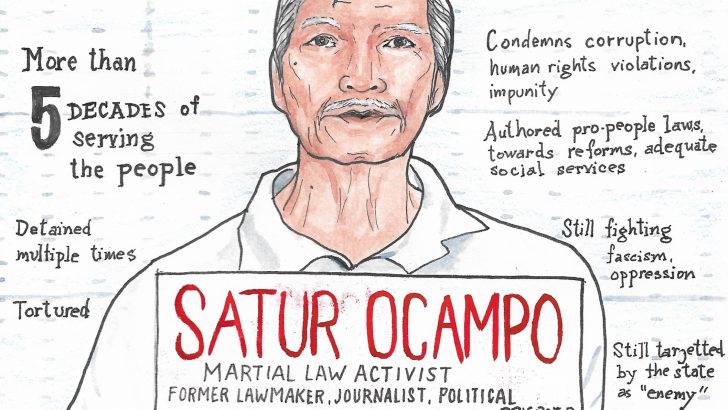 More than
5 DECADES of
serving
the people
Detained
multiple times
Tortured
Condemns corruption,
human rights violations,
impunity
Authored pro-people laws,
towards reforms, adequate
social services
Still fighting
fascism,
oppression
Still targetted
by the state
as "enemy"
SATUR OCAMPO
MARTIAL LAW ACTIVIST
FORMER LAWMAKER, JOURNALIST, POLITICAL